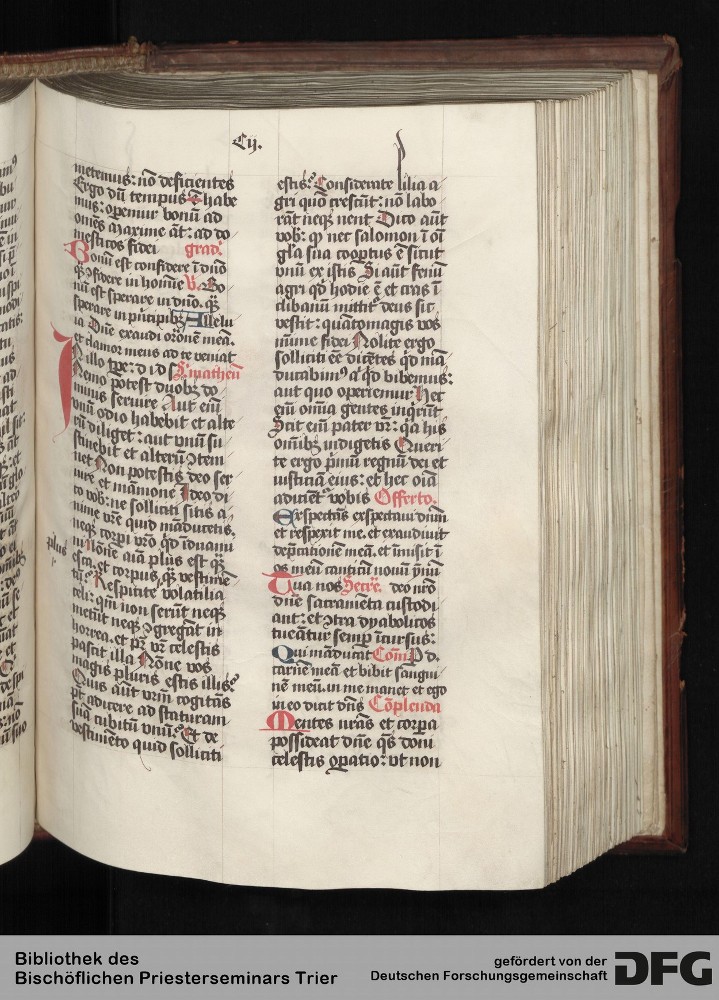 Cij.
metemus: nō deficientes
Ergo dū tempus ē habe
mus: operemur bonū ad
omēs maxime āt: ad do
mesticos fidei grad̄.
Bonū est confidere ī dn̄o
qȝ ꝯfidere in homīe V. Bo
nū est sperare in dn̄o. qȝ
sperare in prīcipibȝ Allelu
ia Dn̄e exaudi or̄onē meā.
et clamor meus ad te veniat
In illo tpr̄e: d i d s S. matheū
Nemo potest duobȝ do
minis seruire Aut eni
vnū odio habebit et alte
rū diliget: aut vnū su
stinebit et alterū ꝯtem
net Non potestis deo ser
uire et māmone Ideo di
co vob̄: ne solliciti sitis a
nime vr̄e quid māducetis.
neqȝ corpi vr̄o qd̄ īduami
ni Nōne aīa plus est qȝ
plus
esca. et corpus qȝ vestimē
tū? Respicite volatilia
celi: qm̄ non serūt neqȝ
metūt neqȝ ꝯgregāt in
horrea. et pr̄ vr̄ celestis
pascit illa Nōne vos
magis pluris estis illis?
Quis aūt vrm̄ cogitās
pt̄ adicere ad staturam
suā cubitū vnū? Et de
vestimēto quid solliciti
estis? Considerate lilia a
gri quō crescūt: nō labo
rāt neqȝ nent Dico aūt
vob̄: qꝫ nec salomon ī oī
gl̄a sua coop̄tus ē sicut
vnū ex istis Si aūt fenū
agri qd̄ hodie ē et cras ī
clibanū mittit̄ deus sic
vestit: quātomagis vos
mīme fidei Nolite ergo
solliciti eē dicētes qd̄ mā
ducabimꝰ aꝰ qd̄ bibemus:
aut quo operiemur Hec
eni omīa gentes inqirūt
Scit eni pater vr̄: qa his
omībȝ indigetis Queri
te ergo p̄mū regnū dei et
iusticiā eius: et hec oīa
adiciēt̄ vobis Offerto.
Exspectās exspectaui dn̄m
et respexit me. et exaudiuit
dep̄cationē meā. et īmisit ī
os meū canticū nouū ymnū
Tua nos Secre. deo nr̄o
dn̄e sacramēta custodi
ant: et ꝯtra dyabolicos
tueātur semp īcursus:
Qui māducat Com̄ō d.
carnē meā et bibit sangui
nē meū. in me manet et ego
in eo dicit dn̄s Cōplenda
Mentes nr̄as et corpa
possideat dn̄e qs̄ doni
celestis opatio: vt non
Bibliothek des
Bischöflichen Priesterseminars Trier
gefördert von der
Deutschen Forschungsgemeinschaft
DFG